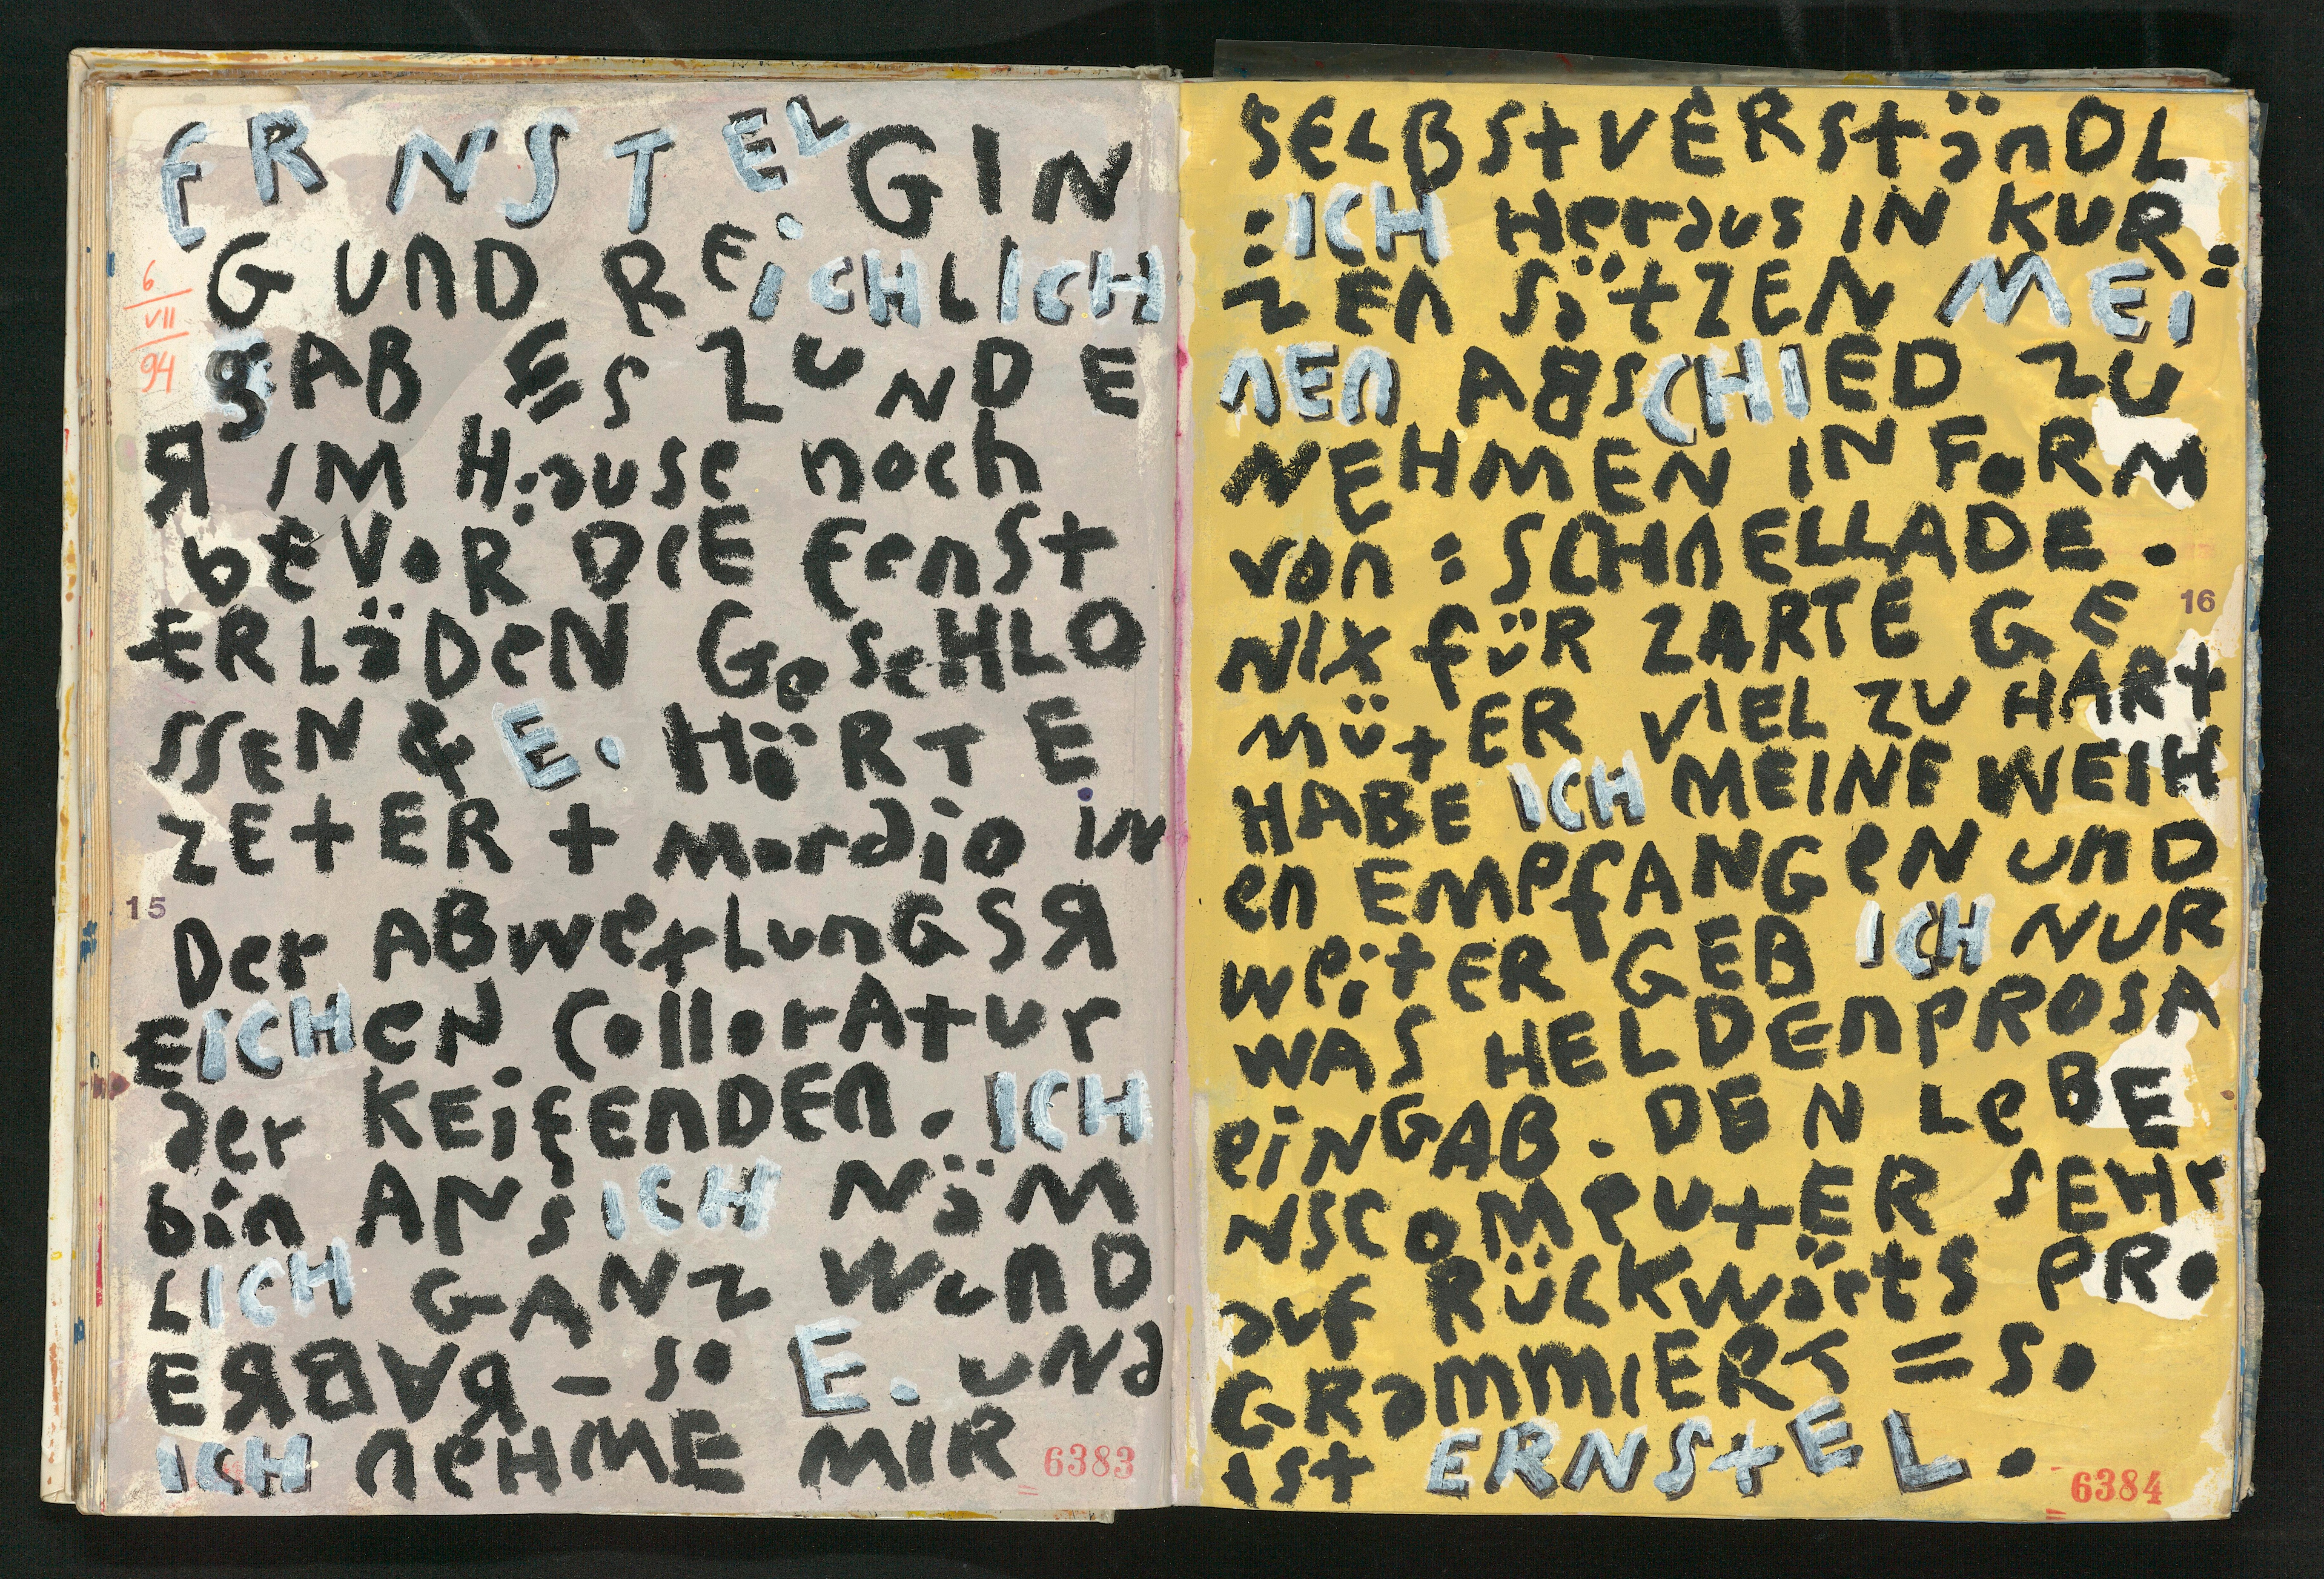 ERNSTEL GIN
G UND REiCHLICH
gAB ES ZUNDE
R IM H:ause noch
bEVoR DIE fenSt
ERLäDeN GeSeHLO
SSEN & E. HöRTE
ZEtER + Mordio iN
Der ABwexLunGSR
EICHeN ColloratUr
der KEifENDEN. ICH
bin ANsICH NäM
LICH GANZ WunD
ERBAR – so E. uNd
ICH neHME MIR
6
VII
94
15
6383
SELBStVERStänDL
:ICH Heraus IN KUR:
ZEn SätZEN MEi
nEn ABSCHIED ZU
NEHMEN IN FoRM
von : SCHnELLADE.
NIX füR ZARTE GE
MütER VIEL ZU HARt
HABE ICH MEINE WEIH
en EMPfANGeN unD
weitER GEB ICH NUR
WAS HELDEnPROSA
eiNGAB. DEN LeBE
NSCoMPUtER SEHr
auf RüCKWärtS PRo
GRaMMIERT = So
ist ERNStEL.
16
6384